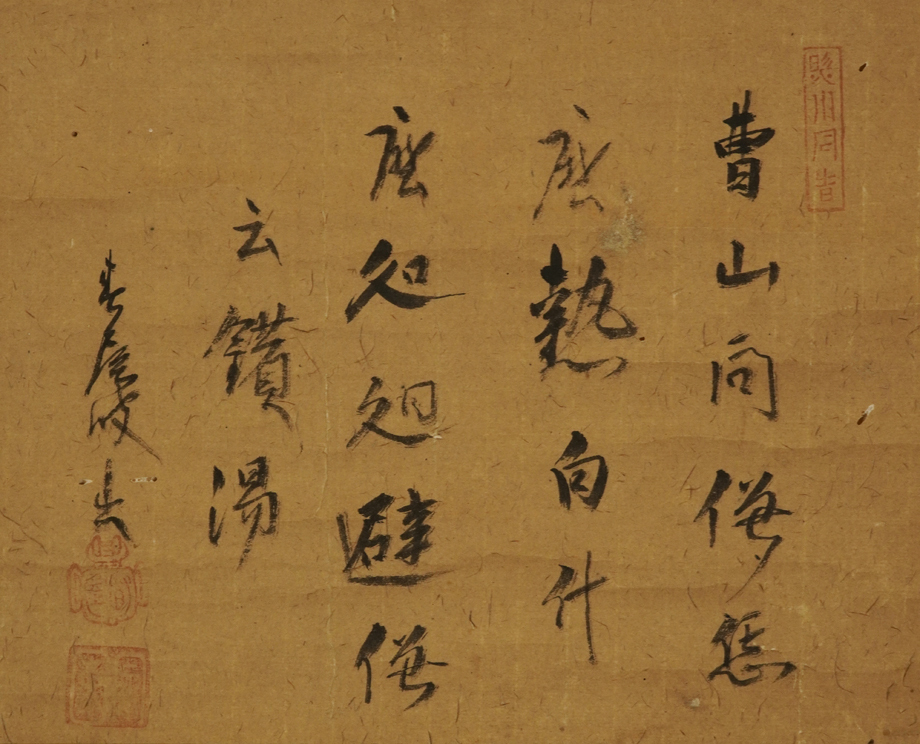 曹山問僧恁
麼熱向什
麼処廻避僧
云鑊湯
春屋叟